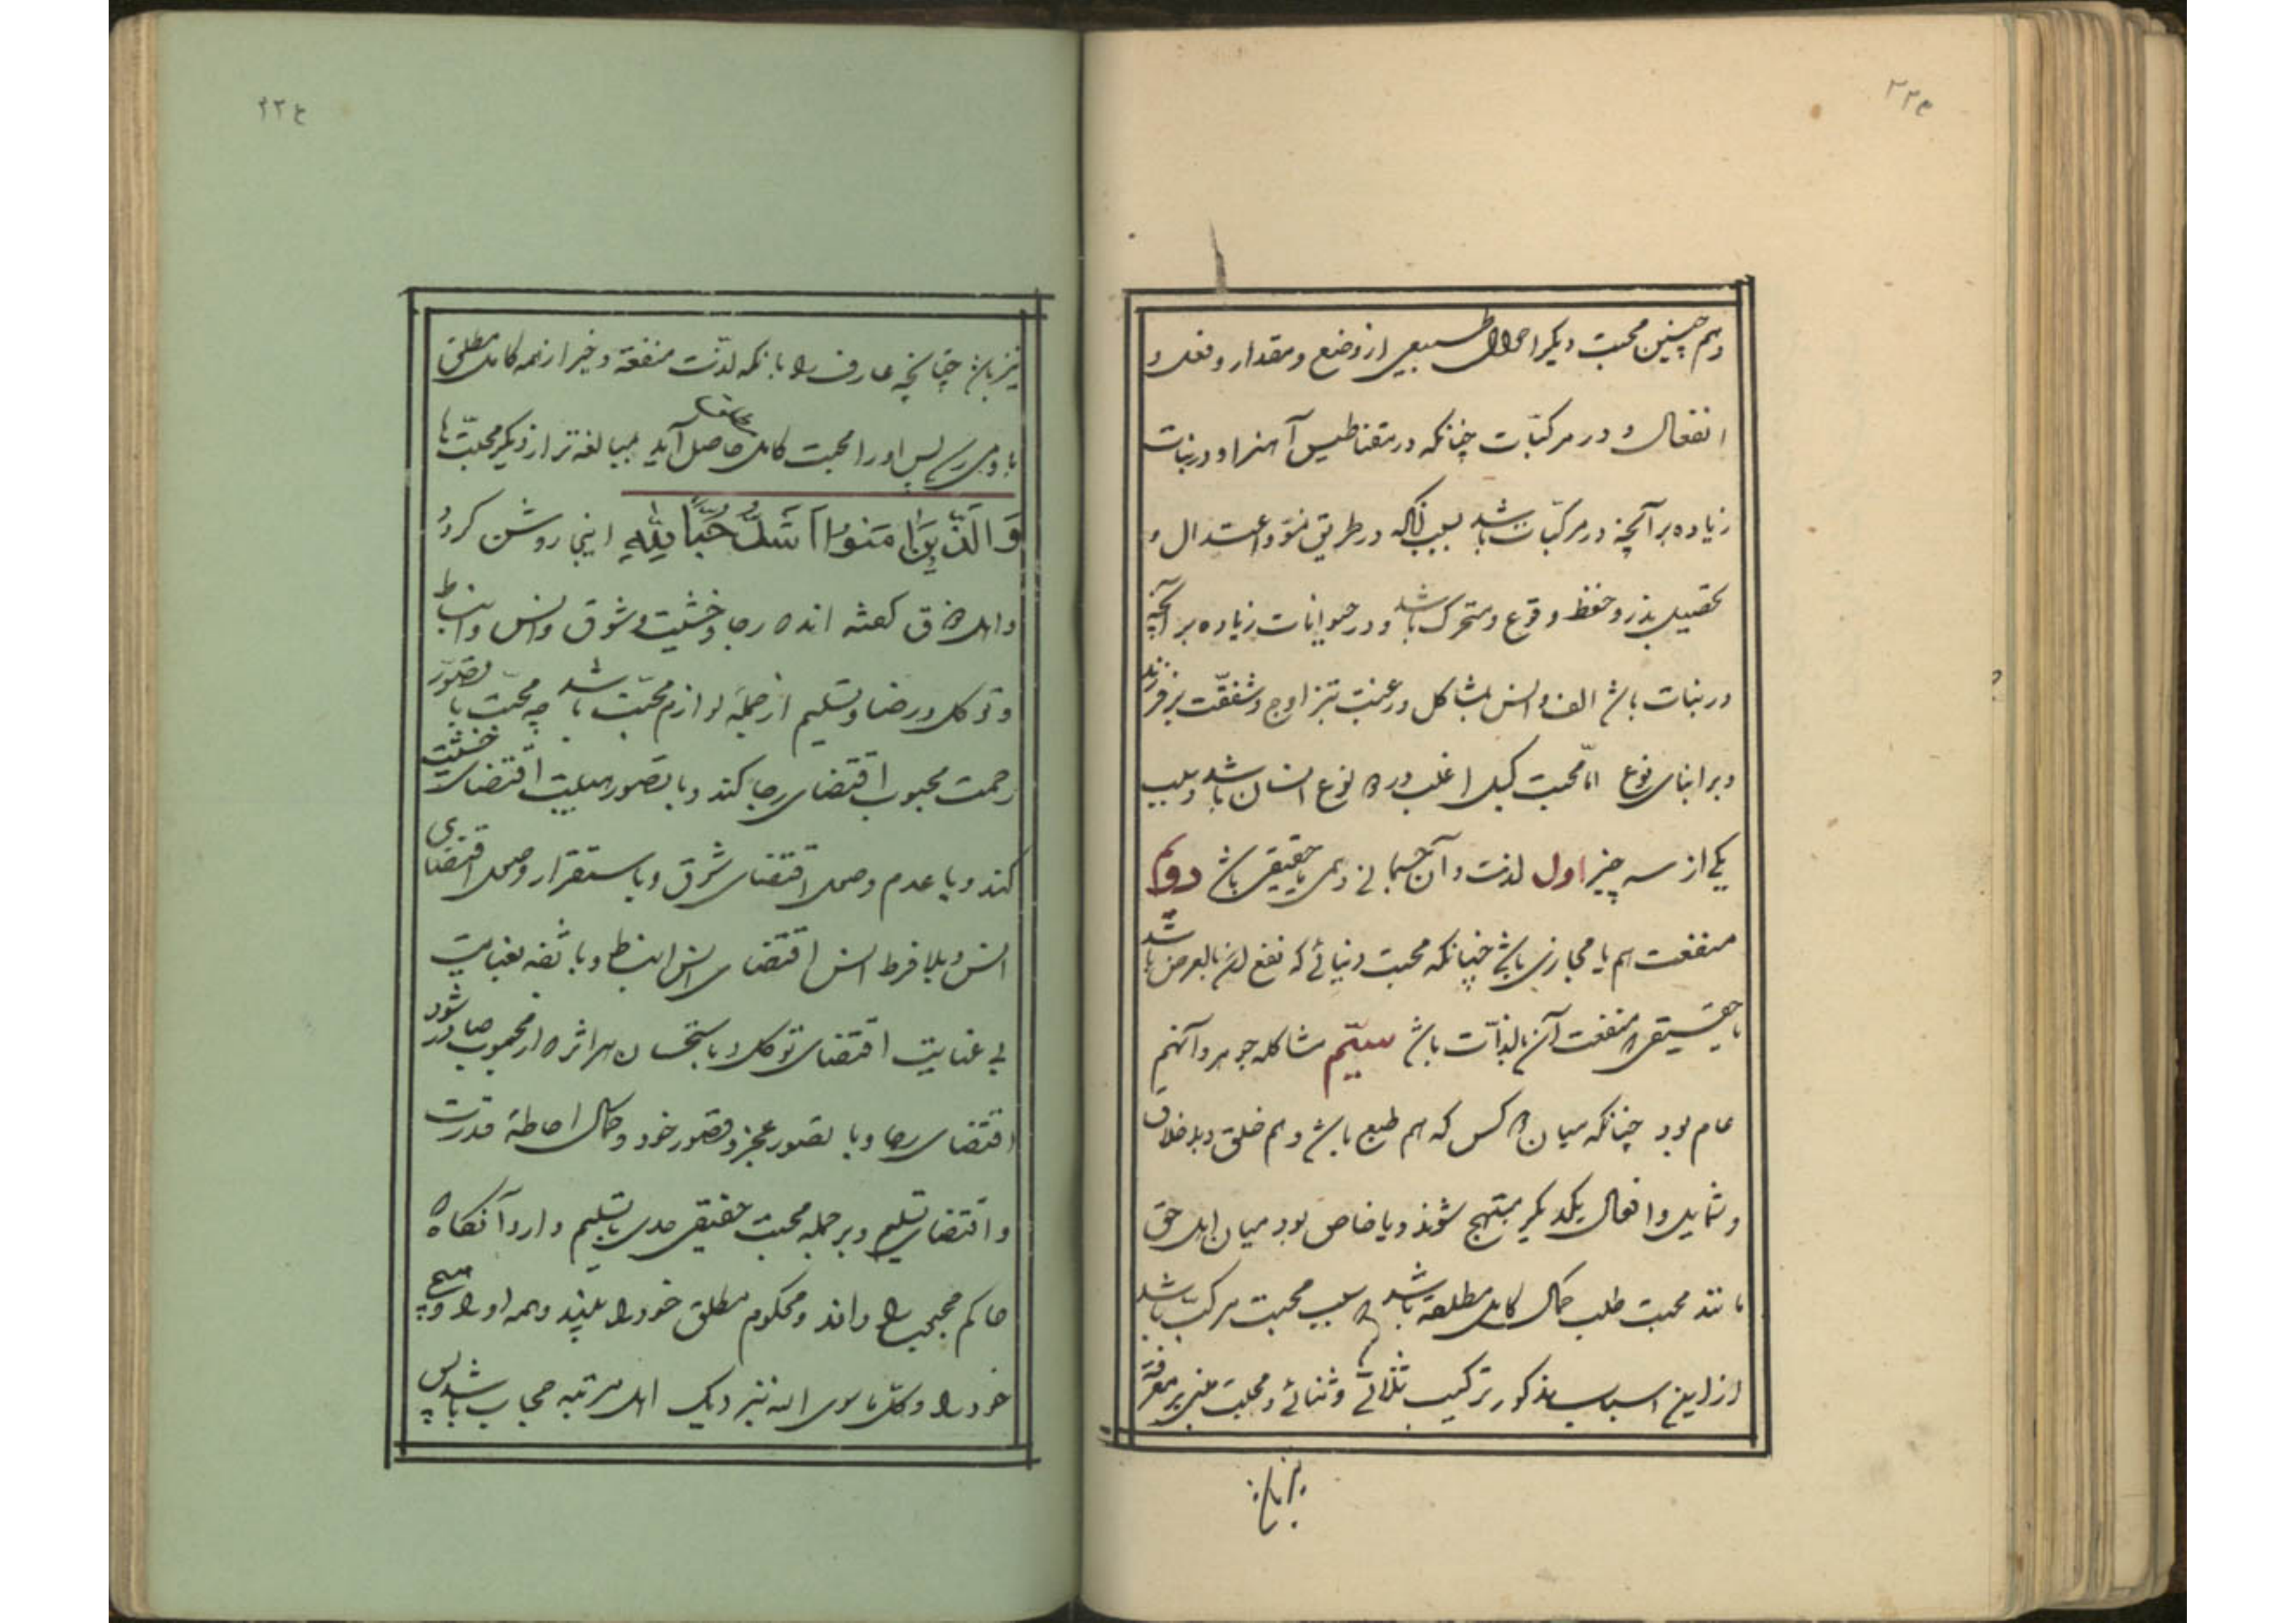 ۲۲۳
وهم چنین محبت دیگر احوال طبیعی از وضع و مقدار و فعل و
انفعال و در مرکبّات چنانکه در مقناطیس آهنرا و در نبات
زیاده بر آنچه در مرکبّات باشد بسبب آنکه در طریق نموّ و اعتدال و
تحصیل بذر و حفظ و قوع و متحرک باشد و در حیوانات زیاده بر آنچه
در نبات باشد الف و انس بمشاکل و رغبت بتزاوج و شفقّت بر فرزند
و بر ابنای نوع امّا محبت کیل اغلب در نوع انسان باشد و بسبب
یکی از سه چیز اول لذت و آن جسمانی وهمی یا حقیقی باشد دویم
منفعت هم یا مجازی باشد چنانکه محبت دنیائی که نفع آن بالعرض باشد
یا حقیقی که منفعت آن بالذّات باشد سیّم مشاکله جوهر و آنهم
عام بود چنانکه میان کس که هم طبع باشد و هم خلق و باخلاق
و شمایل و افعال یکدیگر مبتهج شوند و یا خاص بود میان اهل حق
مانند محبت طلب کمال کامل مطلقه باشد سبب محبت مرکبّ باشد
از این اسباب مذکور ترکیب ثلاثی و ثنائی و محبت مبنی بر معرفة
نیز باشد
۲۲٤
نیز باشد چنانچه عارف را بانکه لذّت منفعة و خیر از همه کامل مطلق
باو می رسد پس او را محبت کامل مطلق حاصل آید بمبالغه تر از دیگر محبّت ها
وَالَّذِينَ اٰمَنُوا اَشَدُّ حُبًّا لِلّٰهِ اینجا روشن کردد
و اهل ذوق کفته اند رجا و خشیت و شوق و انس و انبساط
و توکل و رضا و تسلیم از جملهٔ لوازم محبّت باشد چه محبّت با تصوّر
رحمت محبوب اقتضای رجا کند و با تصور هیبت اقتضای خشیت
کند و با عدم وصل اقتضای شوق و با ستقرار وصل اقتضای
انس و با فرط انس اقتضای انبساط و با ثقه بعنایت
بی عنایت اقتضای توکل و باستحسان هر اثر از محبوب صادر شود
اقتضای رضا و با تصور عجز و قصور خود و کمال احاطهٔ قدرت
و اقتضای تسلیم و بر جمله محبت حقیقی حدی با تسلیم دارد آنکاه
حاکم محبوب را داند و محکوم مطلق خود را بیند و همه او را و هیچ
خود را و کلّ ما سوی الله نزدیک اهل مرتبه حجاب باشد پس